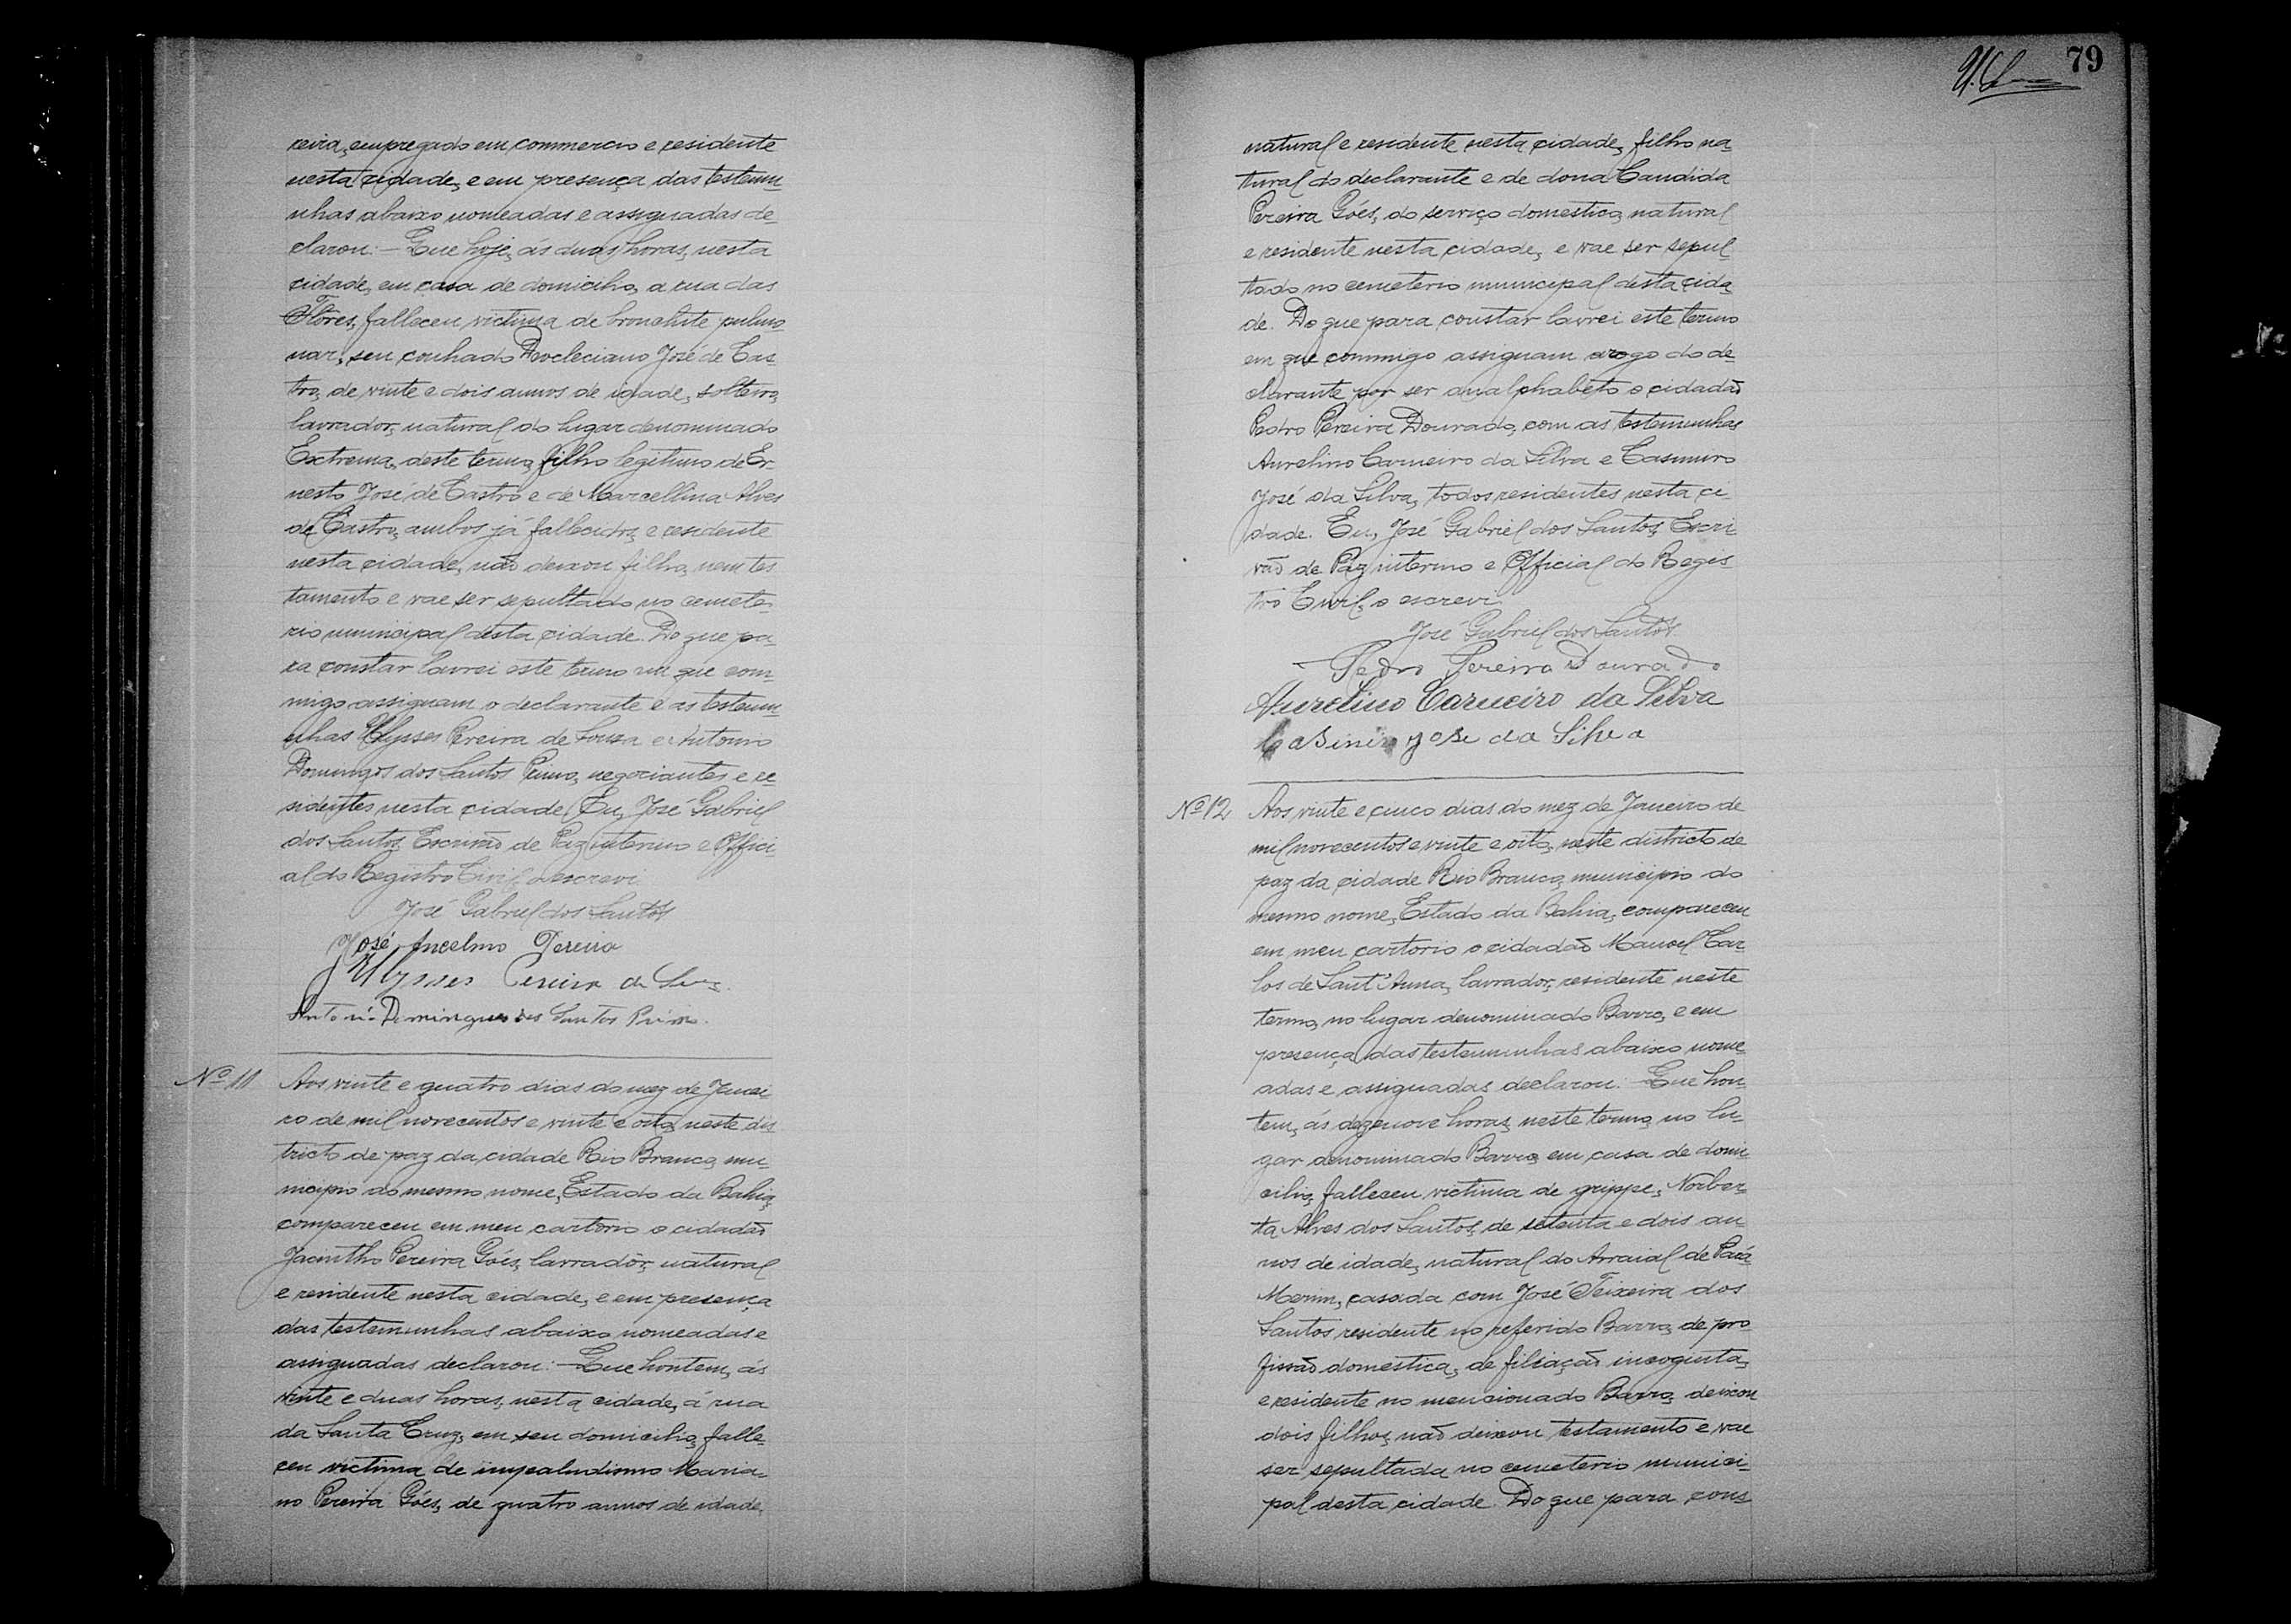 reira, empregado em commercio e residente
nesta cidade, e em presença das testemu-
nhas abaixo nomeadas e assignadas de-
clarou: – Que hoje, ás duas horas, nesta
cidade, em casa de domicilio, a rua das
Flores, falleceu victima de bronchite pulmo-
nar, seu cunhado Deocleciano José de Cas-
tro, de vinte e dois annos de idade, solteiro,
lavrador, natural do lugar denominado
Extrema, deste termo, filho legitimo de Er-
nesto José de Castro e de Marcellina Alves
de Castro, ambos já fallecidos, e residente
nesta cidade, não deixou filho, nem tes
tamento e vae ser sepultado no cemete-
rio municipal desta cidade. Do que pa-
ra constar lavrei este termo em que com-
migo assignam o declarante e as testemu-
nhas Ulysses Pereira de Souza e Antonio
Domingos dos Santos Primo, negociantes e re-
sidentes nesta cidade. Eu, José Gabriel
dos Santos, Escrivão de Paz interino e Offici-
al do Registro Civil, o escrevi.
José Gabriel dos Santos
José Ancelmo Pereira
Ulysses Pereira de
Antonio Domingues dos Santos Primo.
Nº 11 Aos vinte e quatro dias do mez de Janei-
ro de mil novecentos e vinte e oito, neste dis
tricto de paz da cidade Rio Branco, mu-
nicipio do mesmo nome, Estado da Bahia,
compareceu em meu cartorio o cidadão
Jacintho Pereira Góes, lavrador, natural
e residente nesta cidade, e em presença
das testemunhas abaixo nomeadas e
assignadas declarou: – Que hontem, ás
vinte e duas horas, nesta cidade, á rua
da Santa Cruz, em seu domicilio, falle-
ceu victima de impaludismo Maria-
no Pereira Góes, de quatro annos de idade,
79
natural e residente nesta cidade, filho na-
tural do declarante e de dona Candida
Pereira Góes, do serviço domestico, natural
e residente nesta cidade, e vae ser sepul
tado no cemeterio municipal desta cida
de. Do que para constar lavrei este termo
em que commigo assignam arogo do de-
clarante por ser analphabeto o cidadão
Pedro Pereira Dourado, com as testemunhas
Aurelino Carneiro da Silva e Casimiro
José da Silva, todos residentes nesta ci
dade. Eu, José Gabriel dos Santos, Escri
vão de Paz interino e Official do Regis-
tro Civil, o escrevi
José Gabriel dos Santos
Pedro Pereira Dourado
Aurelino Carneiro da Silva
Casimiro jose da Silva
Nº 12 Aos vinte e cinco dias do mez de Janeiro de
mil novecentos e vinte e oito, neste districto de
paz da cidade Rio Branco, municipio do
mesmo nome, Estado da Bahia, compareceu
em meu cartorio o cidadão Manoel Car-
los de Sant'Anna, lavrador, residente neste
termo, no lugar denominado Barro, e em
presença das testemunhas abaixo nome-
adas e assignadas declarou: – Que hon-
tem, ás dezenove horas, neste termo, no lu-
gar denominado Barro, em casa de domi-
cilio, falleceu victima de grippe, Norber-
ta Alves dos Santos, de setenta e dois an
nos de idade, natural do Arraial de Pará
Merim, casada com José Teixeira dos
Santos residente no referido Barro, de pro
fissão domestica, de filiação incognita,
e residente no mencionado Barro, deixou
dois filhos, não deixou testamento e vae
ser sepultada no cemeterio munici-
pal desta cidade. Do que para cons